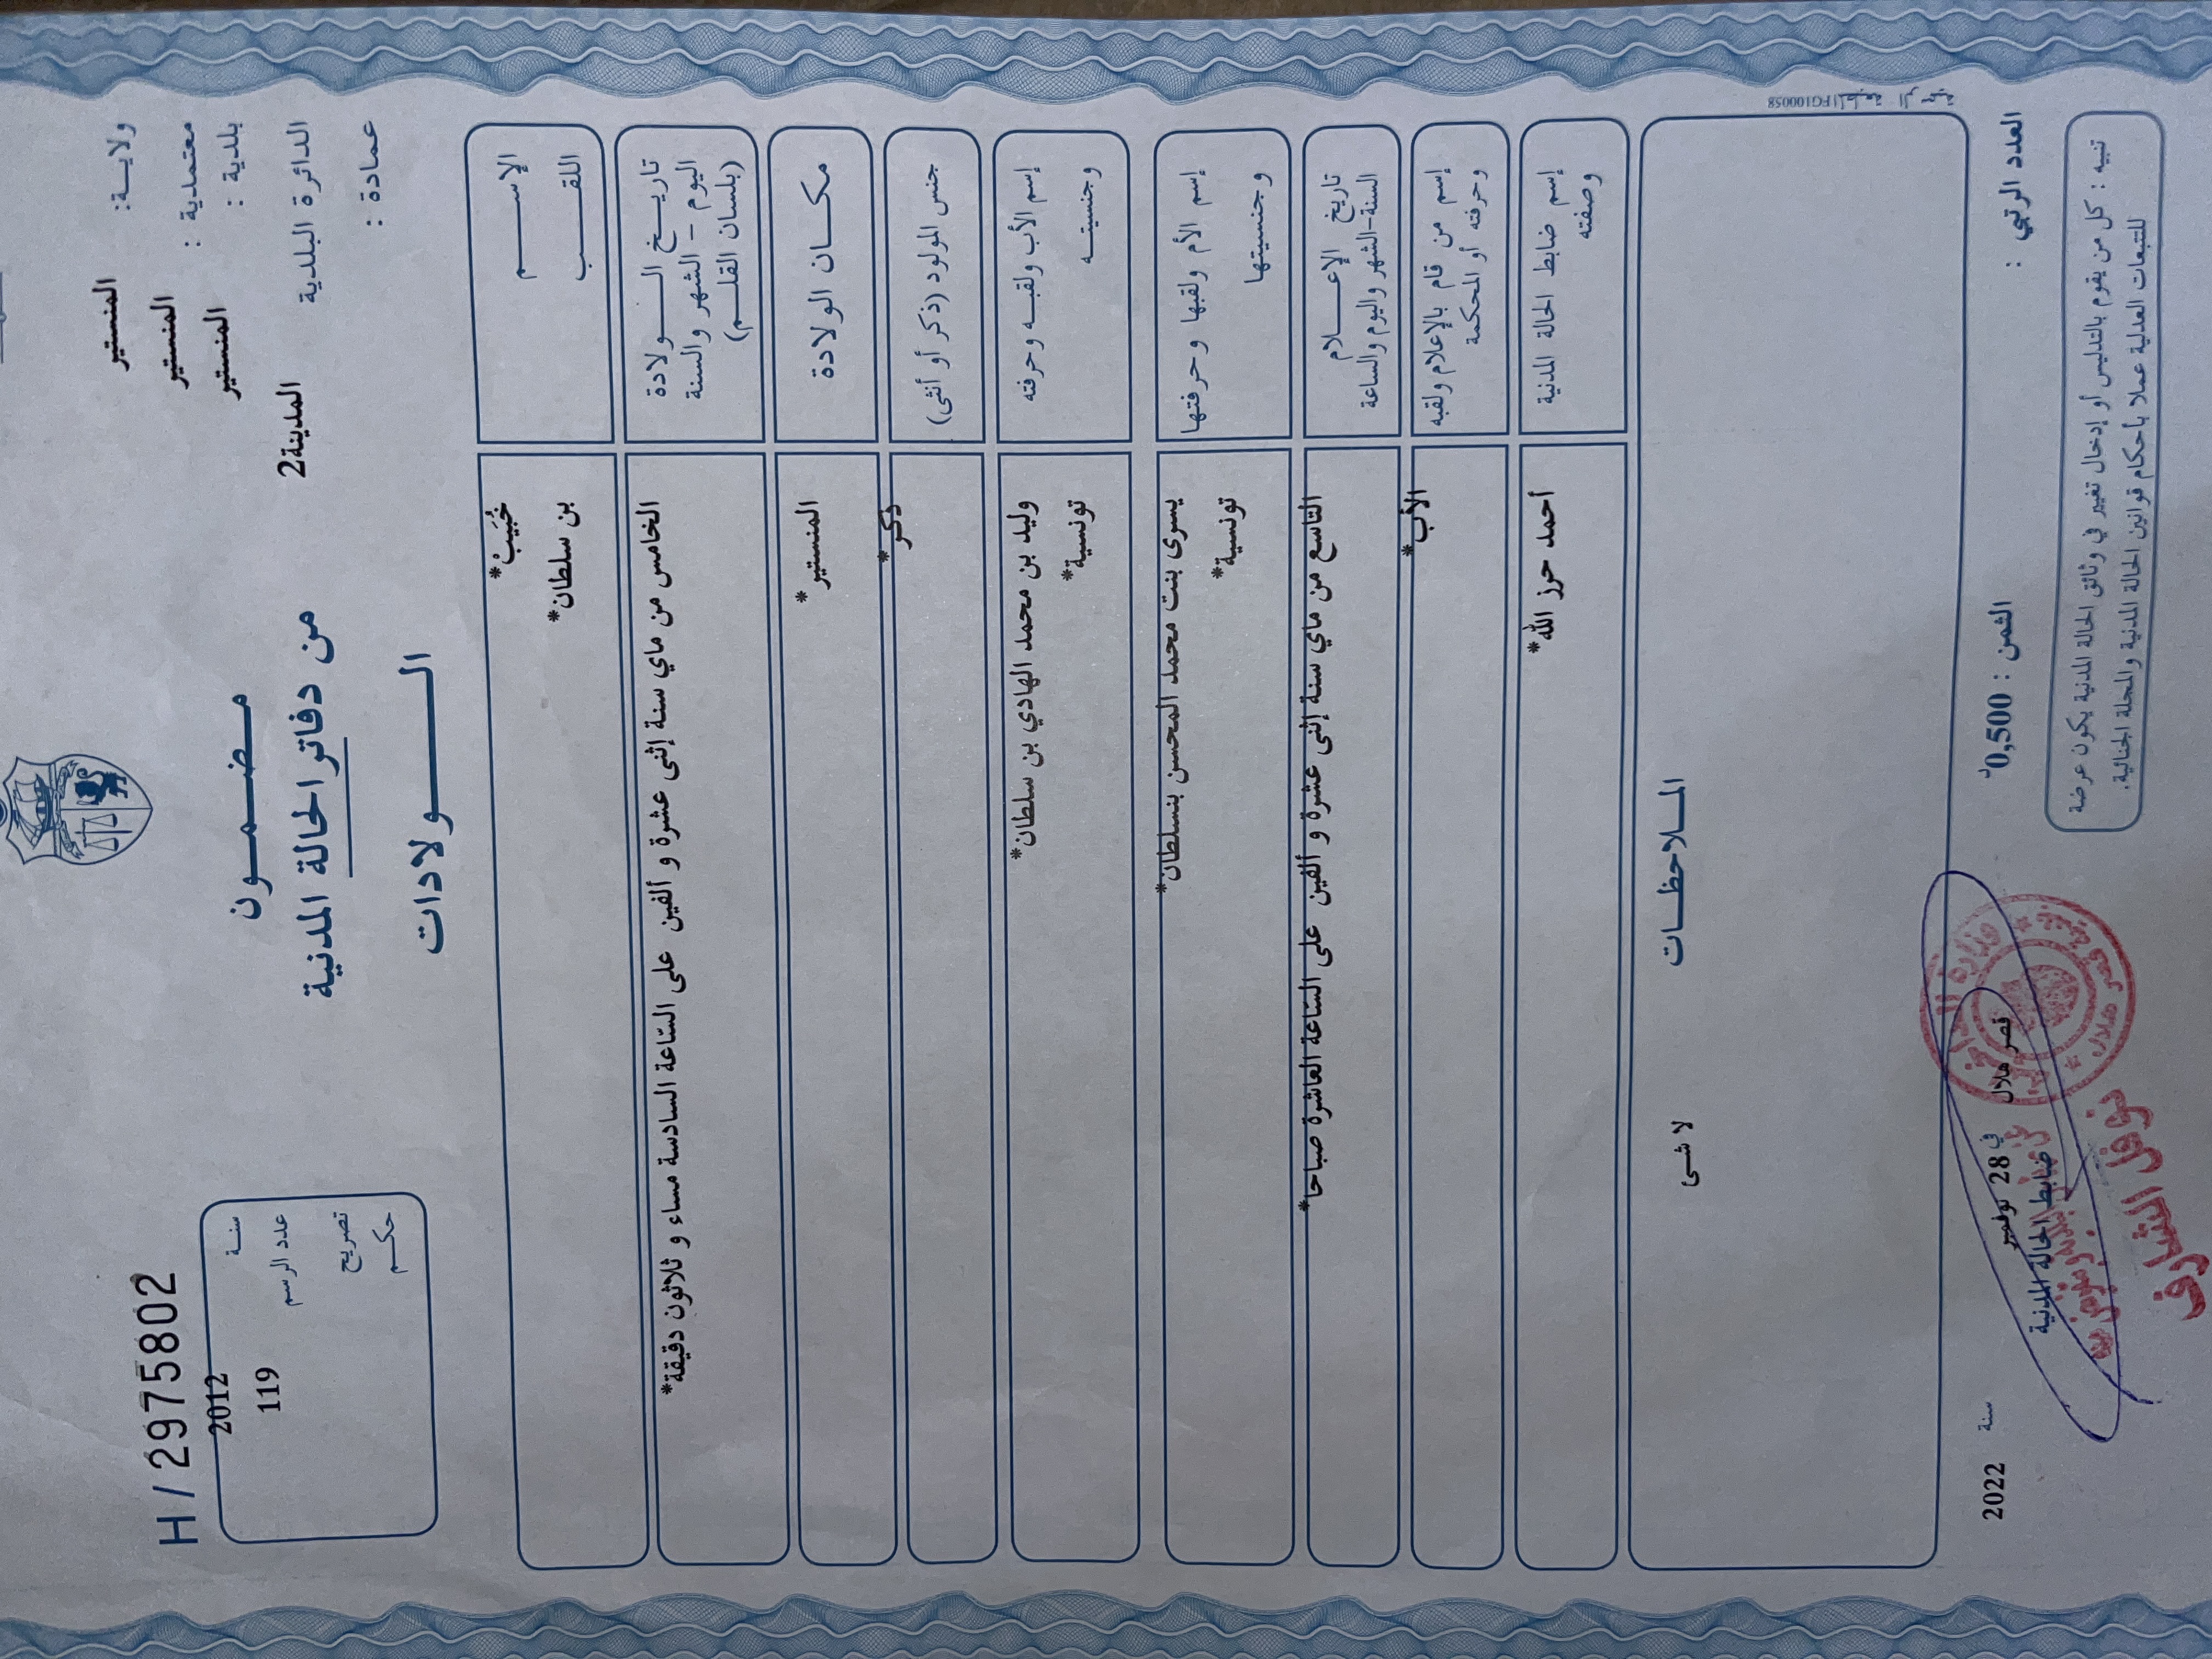 H/2975802
ولايـــة: المنستير
معتمدية : المنستير
بلدية : المنستير
الدائرة البلدية المدينة2
عمادة :
مـضـمــون
من دفاتر الحالة المدنية
الــــولادات
سنــة 2012
عدد الرسم 119
تصريح
حكــم
الإســـــم خُبَيبْ*
اللقــــب بن سلطان*
تاريــخ الـــولادة
اليوم – الشهر والسنة
(بلسان القلــم)
الخامس من ماي سنة إثنى عشرة و ألفين على السّاعة السادسة مساء و ثلاثون دقيقة*
مكــان الولادة المنستير*
جنس المولود (ذكر أو أنثى) ذكر*
إسم الأب ولقبــه وحرفته وليد بن محمد الهادي بن سلطان*
وجنسيتــه تونسية*
إسم الأم ولقبها وحرفتها يسرى بنت محمد المحسن بنسلطان*
وجنسيتها تونسية*
تاريخ الإعــــلام
السنة-الشهر واليوم والساعة
التاسع من ماي سنة إثنى عشرة و ألفين على السّاعة العاشرة صباحا*
إسم من قام بالإعلام ولقبه
وحرفته أو المحكمة
الأب*
إسم ضابط الحالة المدنية
وصفته
أحمد حرز الله*
المــلاحظــات
لا شى
المطبعة الرسمية FG100058
العدد الرتبي :
الثمن : 0,500د
قصر هلال في 28 نوفمبر سنة 2022
ضابط الحالة المدنية
نوفل الشارف
تنبيه : كل من يقوم بالتدليس أو إدخال تغيير في وثائق الحالة المدنية يكون عرضة
للتتبعات العدلية عملا بأحكام قوانين الحالة المدنية والمجلة الجنائية.